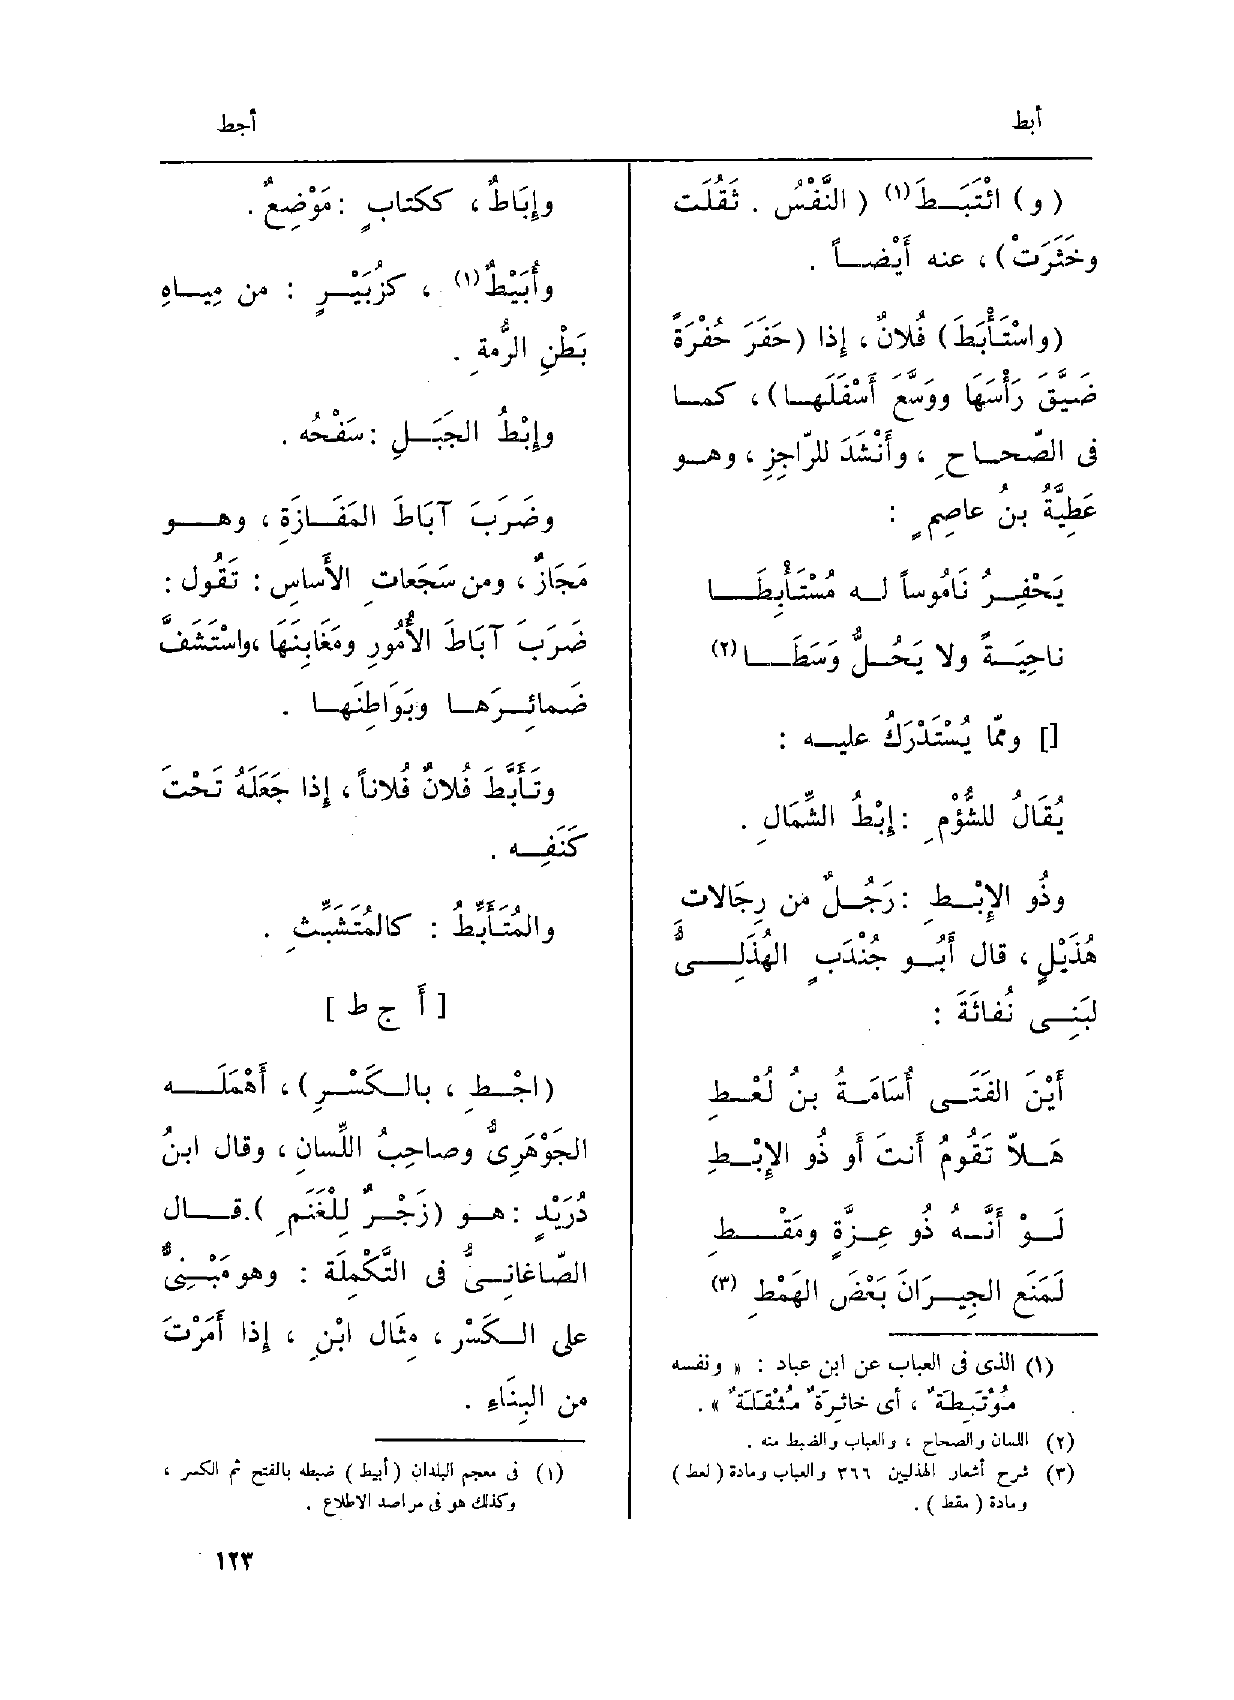 أبط
أجط
(و) ائْتَبَـطَ(١) ( النَّفْسُ . ثَقُلَت
وخَثَرَتْ) ، عنه أَيْضـاً .
(واسْتَأْبَطَ) فُلانٌ ، إذا (حَفَرَ حُفْرَةً
ضَيَّقَ رَأْسَهَا ووَسَّعَ أَسْفَلَهـا) ، كمـا
فى الصّحـاحِ ، وأَنْشَدَ للرّاجِزِ ، وهـو
عَطِيَّةُ بنُ عاصِمٍ :
يَحْفِـرُ نَامُوساً لـه مُسْتَأْبِطَـا
ناحِيَـةً ولا يَحُـلُّ وَسَطَـا(٢)
[] وممّا يُسْتَدْرَكُ عليـه :
يُقَالُ للشُّؤْمِ : إِبْطُ الشِّمَالِ .
وذُو الإِبْـطِ : رَجُـلٌ من رِجَالات
هُذَيْلٍ ، قال أَبُـو جُنْدَبٍ الهُذَلِـىُّ
لبَنِـى نُفاثَةَ :
أَيْنَ الفَتَـى أُسَامَـةُ بنُ لُعْـطِ
هَـلاّ تَقُومُ أَنتَ أَو ذُو الإِبْـطِ
لَـوْ أَنَّـهُ ذُو عِـزَّةٍ ومَقْـطِ
لَمَنَع الجِيـرَانَ بَعْضَ الهَمْطِ (٣)
(١) الذى فى العباب عن ابن عباد : « ونفسه
مُوْتَبِطَةٌ ، أى خاثِرَةٌ مُثْقَلَةٌ » .
(٢) اللسان والصحاح ، والعباب والضبط منه .
(٣) شرح أشعار الهذليين ٣٦٦ والعباب ومادة ( لعط )
ومادة ( مقط ) .
وإِبَاطٌ ، ككتابٍ : مَوْضِعٌ .
وأُبَيْطٌ(١) ، كزُبَيْـرٍ : من مِيـاهِ
بَطْنِ الرُّمةِ .
وإِبْطُ الجَبَـلِ : سَفْحُه .
وضَرَبَ آبَاطَ المَفَـازَةِ ، وهـو
مَجَازٌ ، ومن سَجَعاتِ الأَساسِ : تَقُول :
ضَرَبَ آبَاطَ الأُمُورِ ومَغَابِنَهَا ،واسْتَشَفَّ
ضَمائِـرَهـا وبَوَاطِنَهـا .
وتَأَبَّطَ فُلانٌ فُلاناً ، إذا جَعَلَهُ تَحْتَ
كَنَفِـه .
والمُتَأَبِّطُ : كالمُتَشَبِّثِ .
[ أ ج ط ]
(اجْـطِ ، بالـكَسْـرِ) ، أَهْمَلَـه
الجَوْهَرِىُّ وصاحِبُ اللِّسانِ ، وقال ابنُ
دُرَيْدٍ : هـو (زَجْـرٌ لِلْغَنَمِ ) .قـال
الصّاغانِـىُّ فى التَّكْمِلَة : وهو مَبْنِـىٌّ
على الـكَسْرِ ، مِثَال ابْنِ ، إذا أَمَرْتَ
من البِنَاءِ .
(١) فى معجم البلدان (أبيط ) ضبطه بالفتح ثم الكسر ،
وكذلك هو فى مراصد الاطلاع .
١٢٣